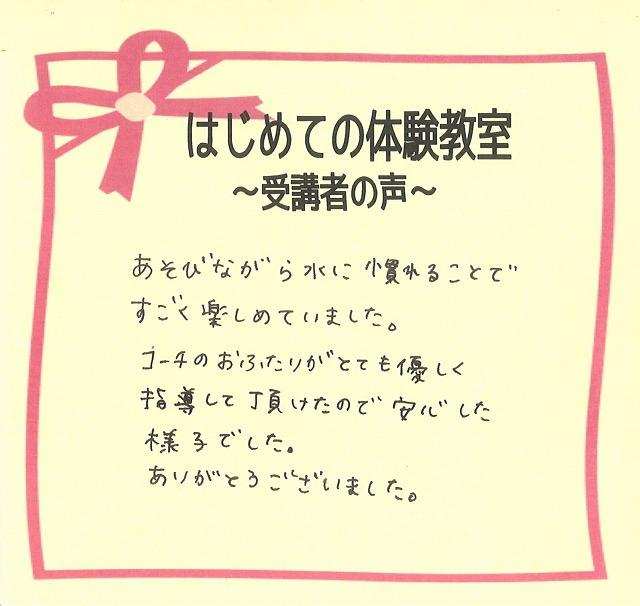 はじめての体験教室
～受講者の声～
あそびながら水に慣れることで
すごく楽しめていました。
コーチのおふたりがとても優しく
指導して頂けたので安心した
様子でした。
ありがとうございました。